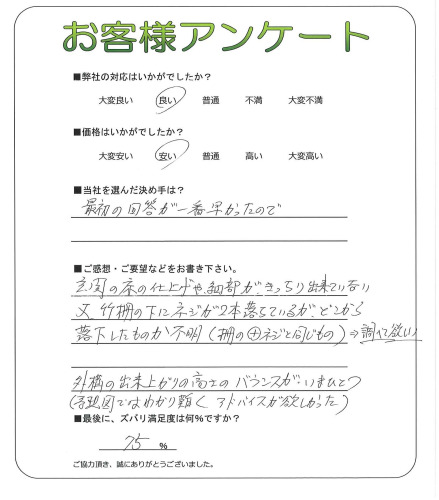 お客様アンケート
■弊社の対応はいかがでしたか？
大変良い 良い 普通 不満 大変不満
■価格はいかがでしたか？
大変安い 安い 普通 高い 大変高い
■当社を選んだ決め手は？
最初の回答が一番早かったので
■ご感想・ご要望などをお書き下さい。
玄関の床の仕上げや、細部が、きっちり出来ていない
又、竹柵の下にネジが2本落ちているが、どこから
落下したものか不明（柵の⊕ネジと同じもの）⇒調べて欲しい
外構の出来上がりの高さのバランスがいまひとつ
図ではわかり難く アドバイスが欲しかった）
■最後に、ズバリ満足度は何％ですか？
75 ％
ご協力頂き、誠にありがとうございました。